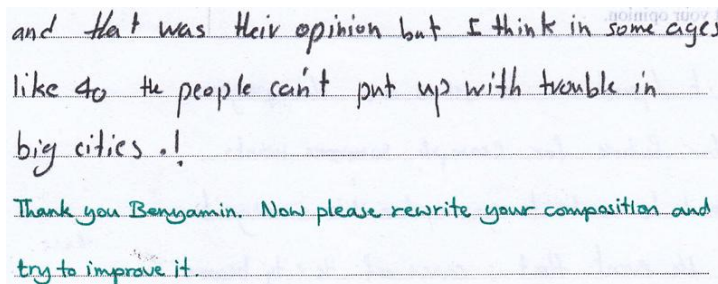 your opinion.
and that was their opinion but I think in some ages
like 40 the people can't put up with trouble in
big cities .!
Thank you Benyamin. Now please rewrite your composition and
try to improve it.